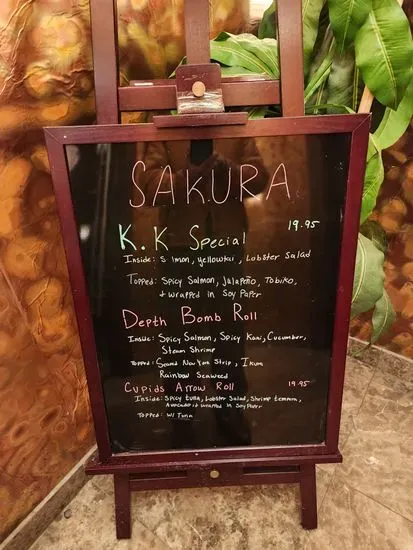 SAKURA
K.K Special 19.95
Inside: S lmon, yellowtail, Lobster Salad
Topped: Spicy Salmon, Jalapeño, Tobiko,
+ wrapped in Soy Paper
Depth Bomb Roll
Inside: Spicy Salmon, Spicy Kani, Cucumber,
Steam Shrimp
Topped: Seared New York Strip, Ikura
Rainbow Seaweed
Cupids Arrow Roll 19.95
Inside: Spicy tuna, Lobster Salad, Shrimp tempura,
Avocado it wrapped in Soy Paper
Topped: w/ Tuna